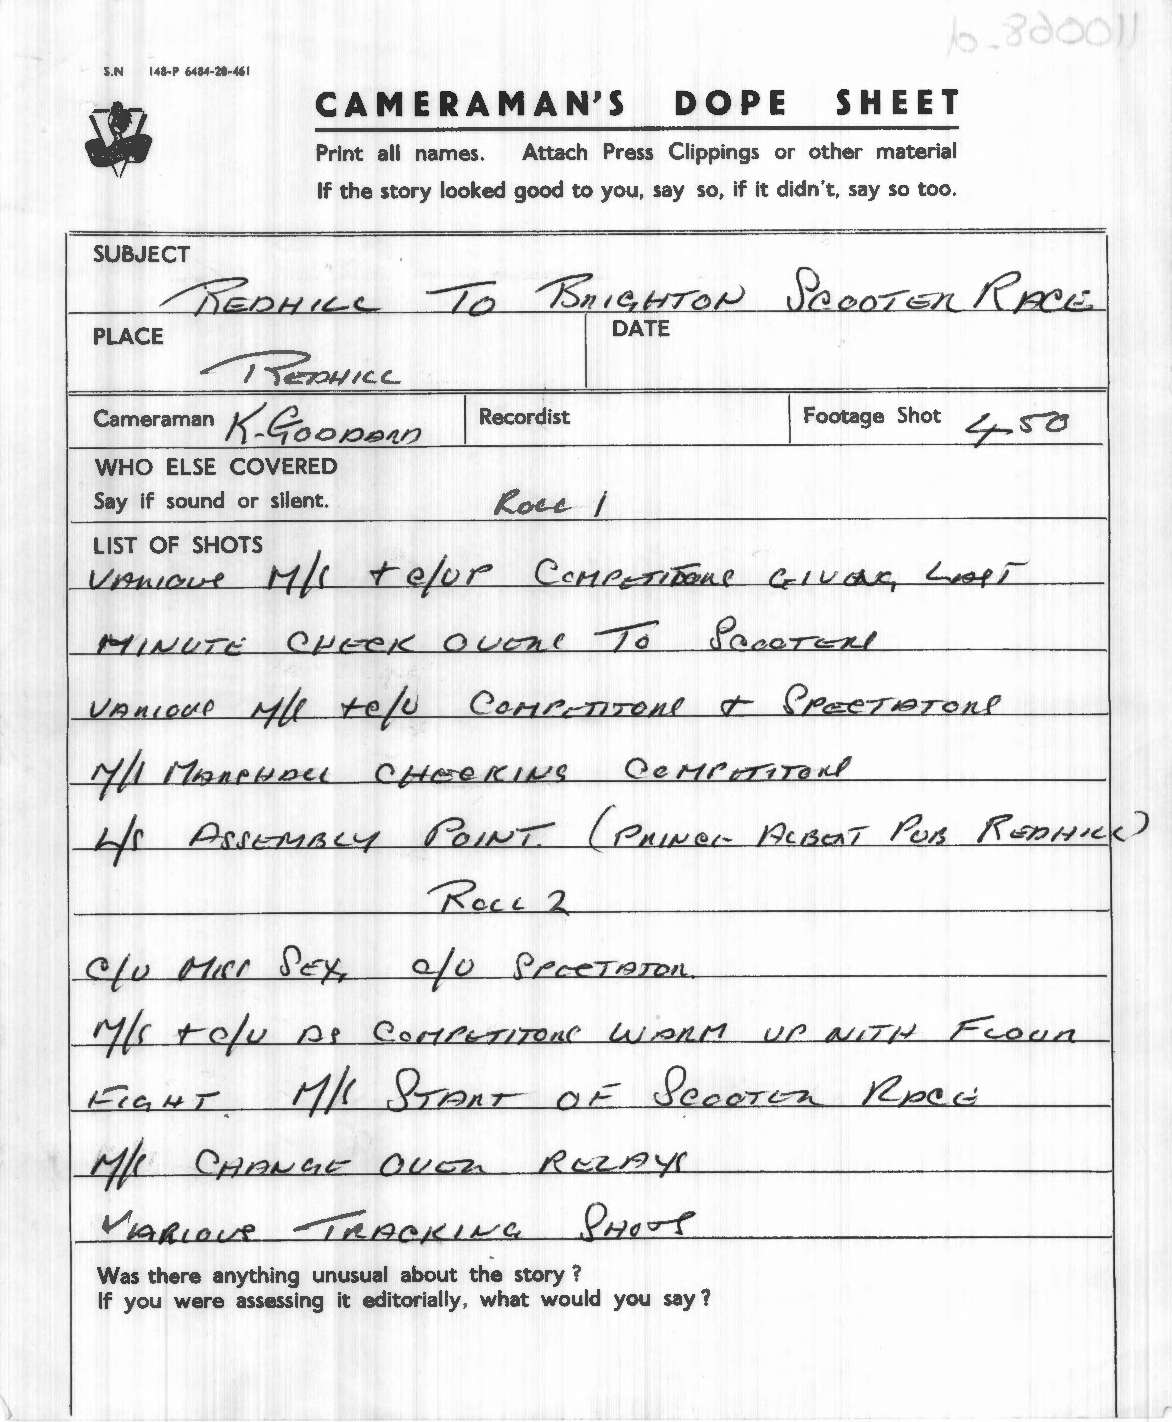 S.N 148-P 6484-28-461
CAMERAMAN'S DOPE SHEET
Print all names. Attach Press Clippings or other material
If the story looked good to you, say so, if it didn't, say so too.
SUBJECT
REDHILL TO BRIGHTON SCOOTER RACE
PLACE DATE
REDHILL
Cameraman K. GODDARD Recordist Footage Shot 450
WHO ELSE COVERED
Say if sound or silent. ROLL 1
LIST OF SHOTS
VARIOUS M/S + C/UP COMPETITORS GIVING LAST
MINUTE CHECK OVERS TO SCOOTERS
VARIOUS M/S + C/U COMPETITORS + SPECTATORS
M/S MARSHALL CHECKING COMPETITORS
L/S ASSEMBLY POINT. (PRINCE ALBERT PUB REDHILL)
ROLL 2
C/U MISS SEX, C/U SPECTATOR.
M/S + C/U AS COMPETITORS WARM UP WITH FLOUR
FIGHT. M/S START OF SCOOTER RACE
M/S CHANGE OVER RELAYS
VARIOUS TRACKING SHOTS
Was there anything unusual about the story?
If you were assessing it editorially, what would you say?